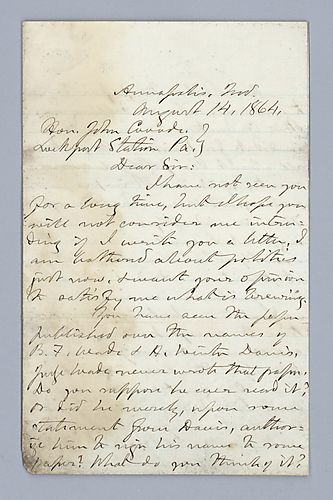 Annapolis, Md.
August 14, 1864.
Hon. John Covode, }
Lockport Station Pa. }
Dear Sir:
I have not seen you
for a long time, but I hope you
will not consider me intru-
ding if I write you a letter, I
am bothered about politics
just now, & want your opinion
to satisfy me what is brewing.
You have seen the paper
published over the names of
B. F. Wade & H. Winter Davis,
Judge Wade never wrote that paper.
Do you suppose he ever read it?
or did he merely, upon some
statement from Davis, author-
ize him to sign his name to some
paper? What do you think of it?